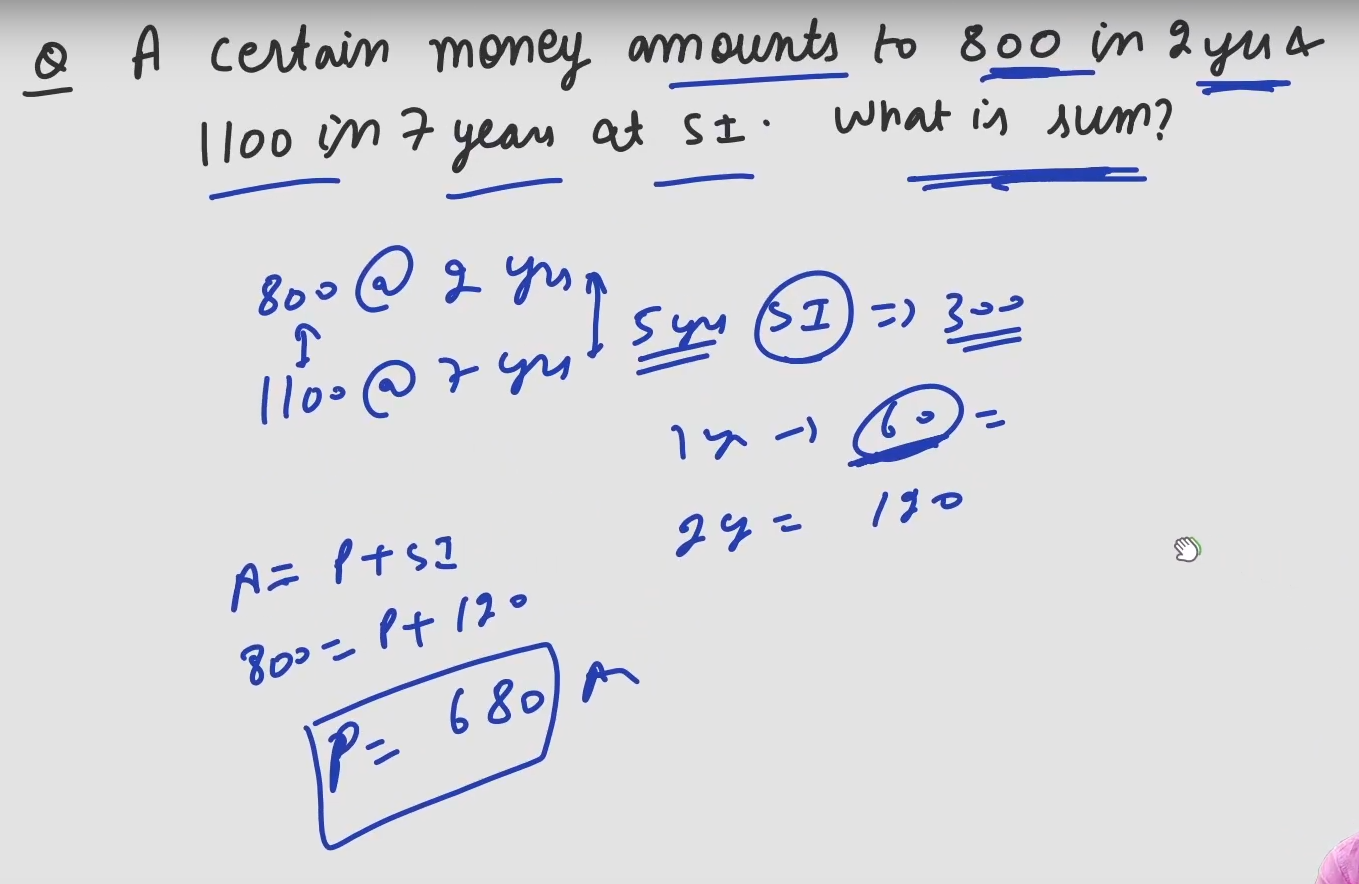 Q A certain money amounts to 800 in 2 yrs &
1100 in 7 years at SI. What is sum?
800 @ 2 yrs
1100 @ 7 yrs
5 yrs SI => 300
1 y → 60 =
2 y = 120
A = P + SI
800 = P + 120
P = 680 A